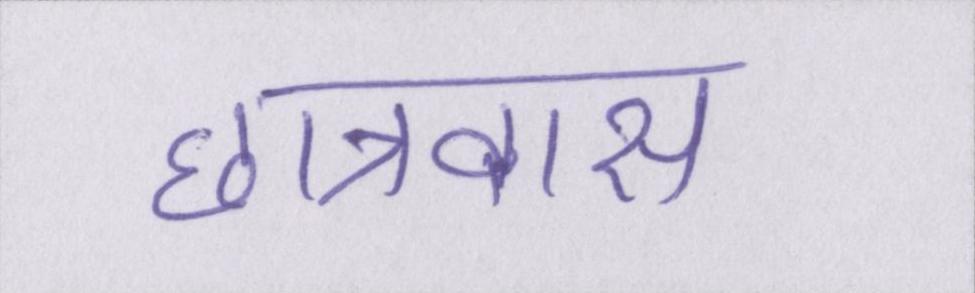 छात्रवास